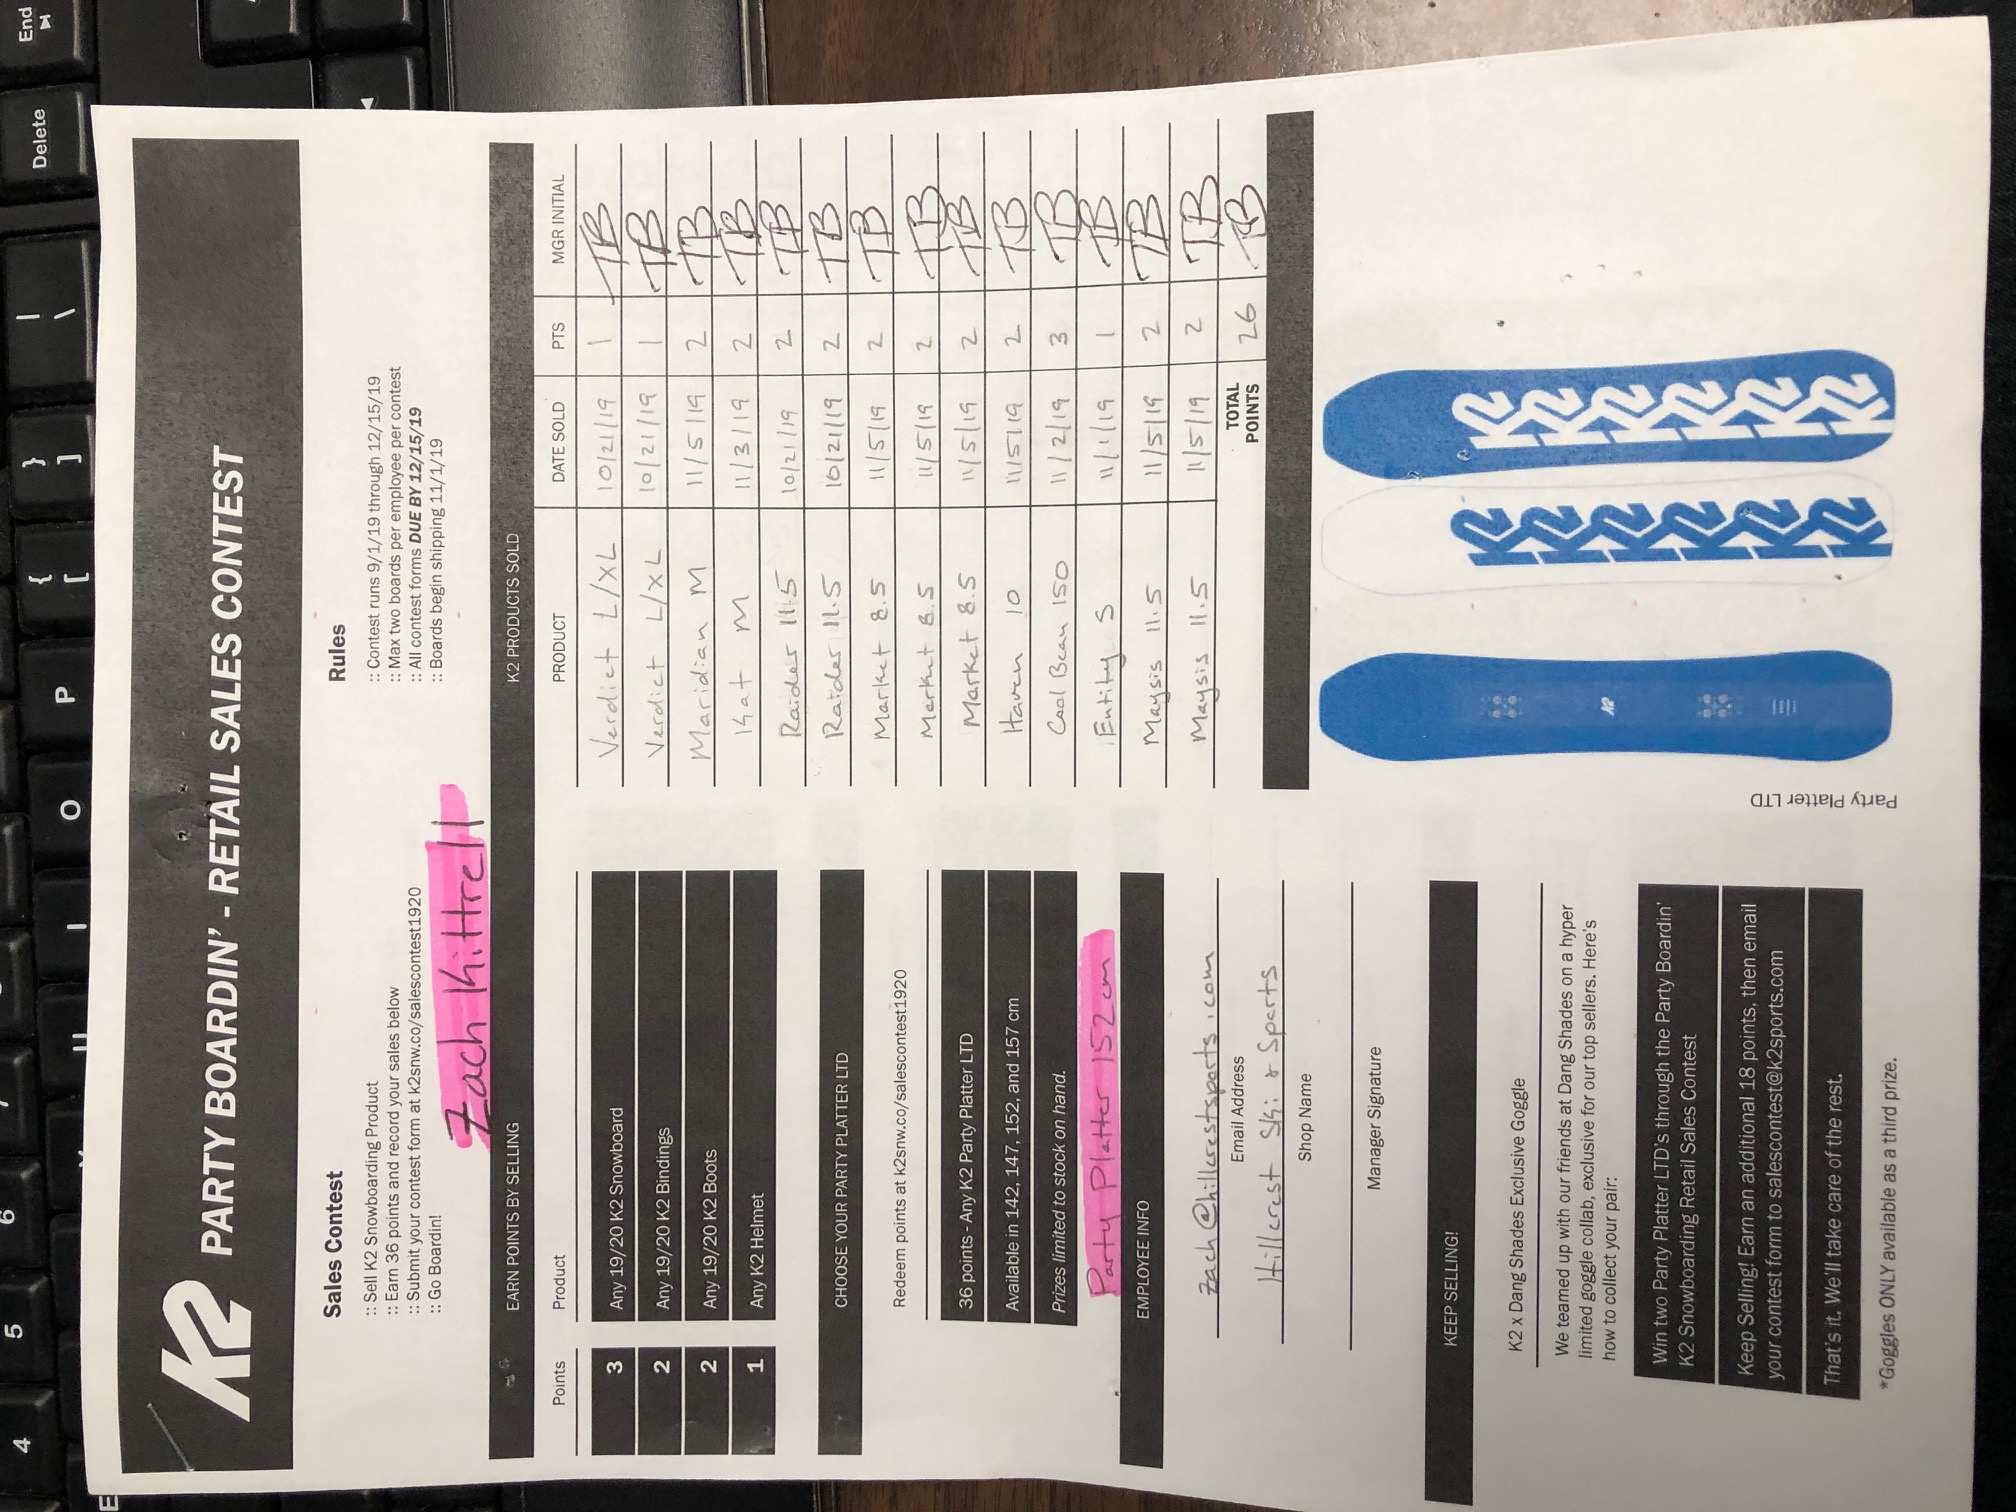 4 5 6
Delete End
U I O P { [ } ] | \
E
K2 PARTY BOARDIN' - RETAIL SALES CONTEST
Sales Contest
:: Sell K2 Snowboarding Product
:: Earn 36 points and record your sales below
:: Submit your contest form at k2snw.co/salescontest1920
:: Go Boardin!
Rules
:: Contest runs 9/1/19 through 12/15/19
:: Max two boards per employee per contest
:: All contest forms DUE BY 12/15/19
:: Boards begin shipping 11/1/19
Zach Kittrell
EARN POINTS BY SELLING
Points Product
3 Any 19/20 K2 Snowboard
2 Any 19/20 K2 Bindings
2 Any 19/20 K2 Boots
1 Any K2 Helmet
CHOOSE YOUR PARTY PLATTER LTD
Redeem points at k2snw.co/salescontest1920
36 points - Any K2 Party Platter LTD
Available in 142, 147, 152, and 157 cm
Prizes limited to stock on hand.
Party Platter 152cm
EMPLOYEE INFO
zach@hillcrestsports.com
Email Address
Hillcrest Ski & Sports
Shop Name
Manager Signature
KEEP SELLING!
K2 x Dang Shades Exclusive Goggle
We teamed up with our friends at Dang Shades on a hyper
limited goggle collab, exclusive for our top sellers. Here's
how to collect your pair:
Win two Party Platter LTD's through the Party Boardin'
K2 Snowboarding Retail Sales Contest
Keep Selling! Earn an additional 18 points, then email
your contest form to salescontest@k2sports.com
That's it. We'll take care of the rest.
*Goggles ONLY available as a third prize.
K2 PRODUCTS SOLD
PRODUCT DATE SOLD PTS MGR INITIAL
Verdict L/XL 10/21/19 1 TB
Verdict L/XL 10/21/19 1 TB
Maridian M 11/5/19 2 TB
Kat M 11/3/19 2 TB
Raider 11.5 10/21/19 2 TB
Raider 11.5 10/21/19 2 TB
Market 8.5 11/5/19 2 TB
Market 8.5 11/5/19 2 TB
Market 8.5 11/5/19 2 TB
Haven 10 11/5/19 2 TB
Cool Bean 150 11/2/19 3 TB
Entity S 11/1/19 1 TB
Maysis 11.5 11/5/19 2 TB
Maysis 11.5 11/5/19 2 TB
TOTAL
POINTS 26 TB
Party Platter LTD
K2
K2 K2 K2 K2 K2 K2
K2 K2 K2 K2 K2 K2